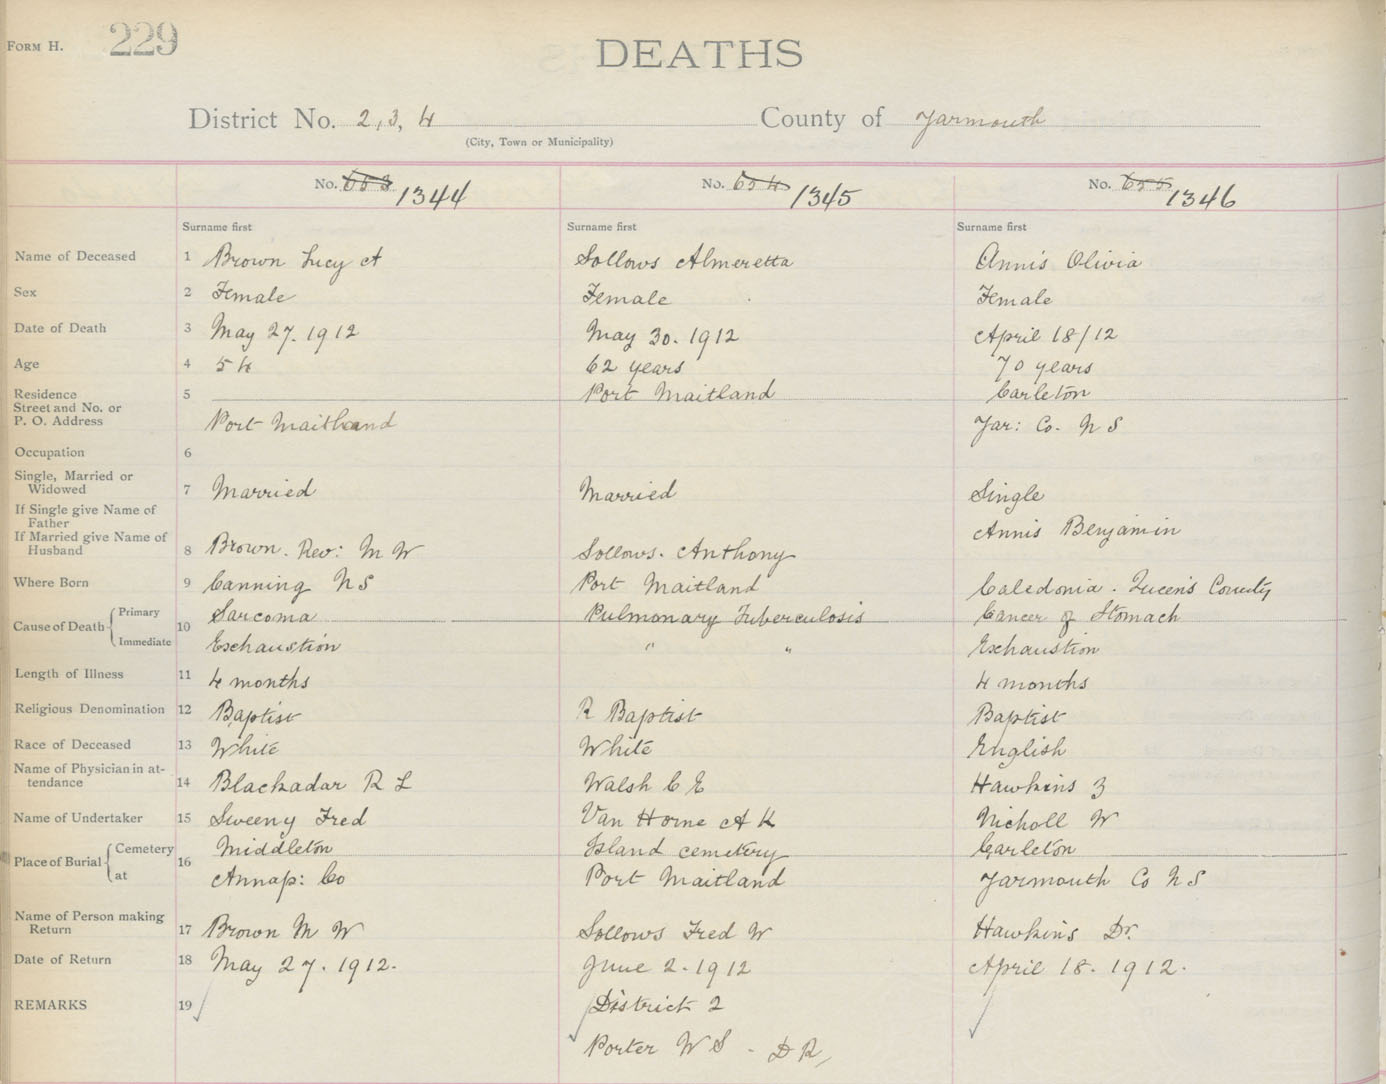 FORM H. 229
DEATHS
District No. 2, 3, 4 County of Yarmouth
(City, Town or Municipality)
No. 653 1344 No. 654 1345 No. 655 1346
Surname first Surname first Surname first
Name of Deceased 1 Brown Lucy A Sollows Almeretta Annis Olivia
Sex 2 Female Female Female
Date of Death 3 May 27. 1912 May 30. 1912 April 18/12
Age 4 54 62 years 70 years
Residence 5 Port Maitland Carleton
Street and No. or
P. O. Address Port Maitland Yar: Co. N S
Occupation 6
Single, Married or
Widowed 7 Married Married Single
If Single give Name of
Father Annis Benjamin
If Married give Name of
Husband 8 Brown. Rev: M W Sollows. Anthony
Where Born 9 Canning N S Port Maitland Caledonia. Queen's County
Cause of Death 10 Primary Sarcoma Pulmonary Tuberculosis Cancer of Stomach
Immediate Exhaustion " " Exhaustion
Length of Illness 11 4 months 4 months
Religious Denomination 12 Baptist R Baptist Baptist
Race of Deceased 13 White White English
Name of Physician in at-
tendance 14 Blackadar R L Walsh C E Hawkins Z
Name of Undertaker 15 Sweeny Fred Van Horne A K Nicholl W
Place of Burial 16 Cemetery Middleton Island cemetery Carleton
at Annap: Co Port Maitland Yarmouth Co N S
Name of Person making
Return 17 Brown M W Sollows Fred W Hawkins Dr.
Date of Return 18 May 27. 1912. June 2. 1912 April 18. 1912.
REMARKS 19 District 2
Porter W S - D R